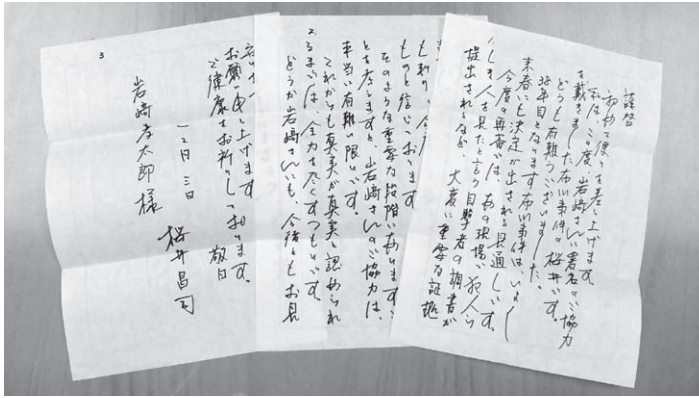 謹啓
初めて便りを差し上げます。
私は、この度、岩崎さんに署名のご協力
を戴きました布川事件の桜井です。
どうも有難うございました。
38年目となります布川事件は、いよいよ
来春にも決定が出される見通しです。
今度の再審では、あの現場で犯人ら
しき人を見たと言う目撃者の調書が
提出されるなど、大変に重要な証拠
ものと信じております
そのような重要な段階にあります
ことを存じますと、岩崎さんのご協力は
本当に有難い限りです。
これからも真実が真実と認められ
るまでは、全力を尽くすつもりです。
どうか岩崎さんにも、今後ともお見
3
お願い申し上げます
ご健康をお祈りしております。
敬白
一二月三日
桜井昌司
岩崎孝太郎様